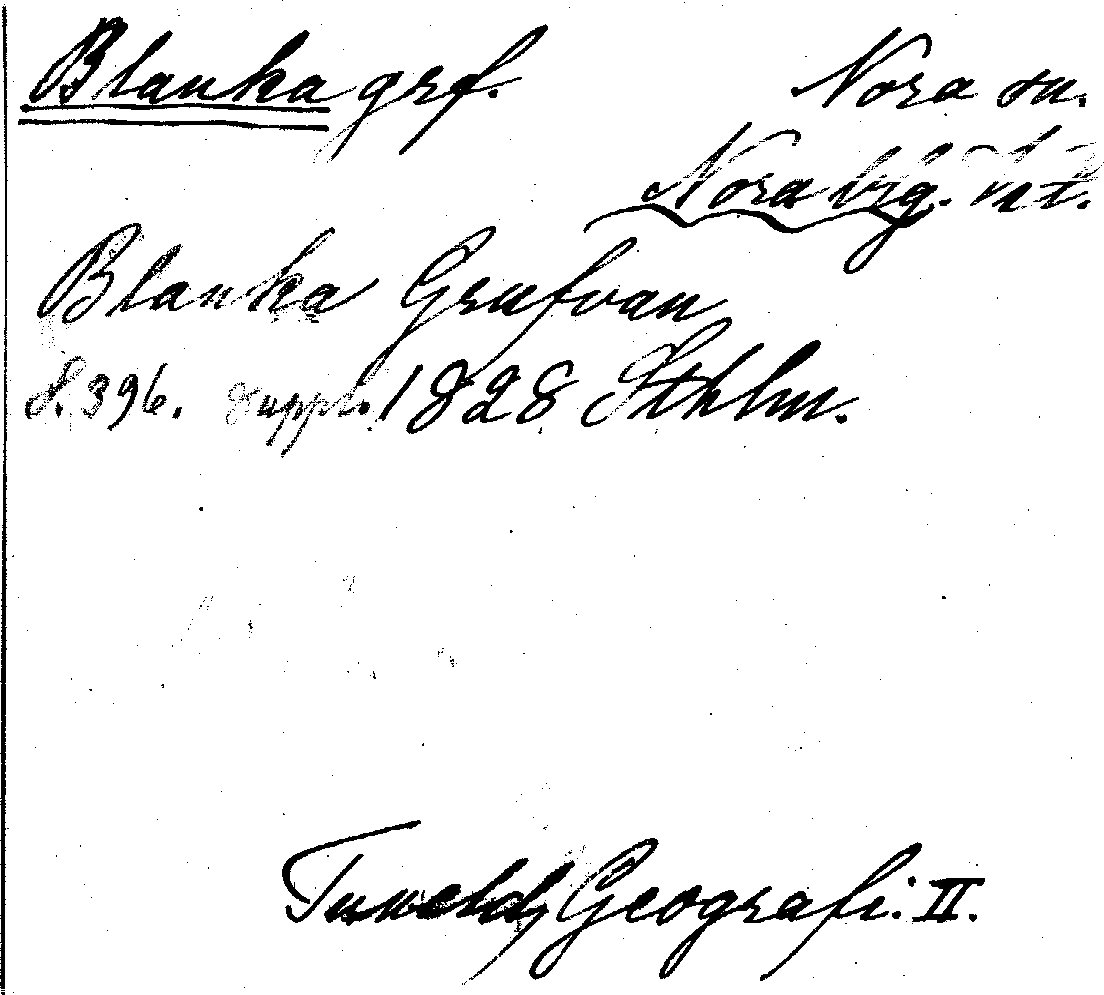 Blanka grf.
Nora sn.
Nora brg. 
Blanka Grufvan
S. 396. suppl. 1828 Sthlm.
Tuneld, Geografi. II.